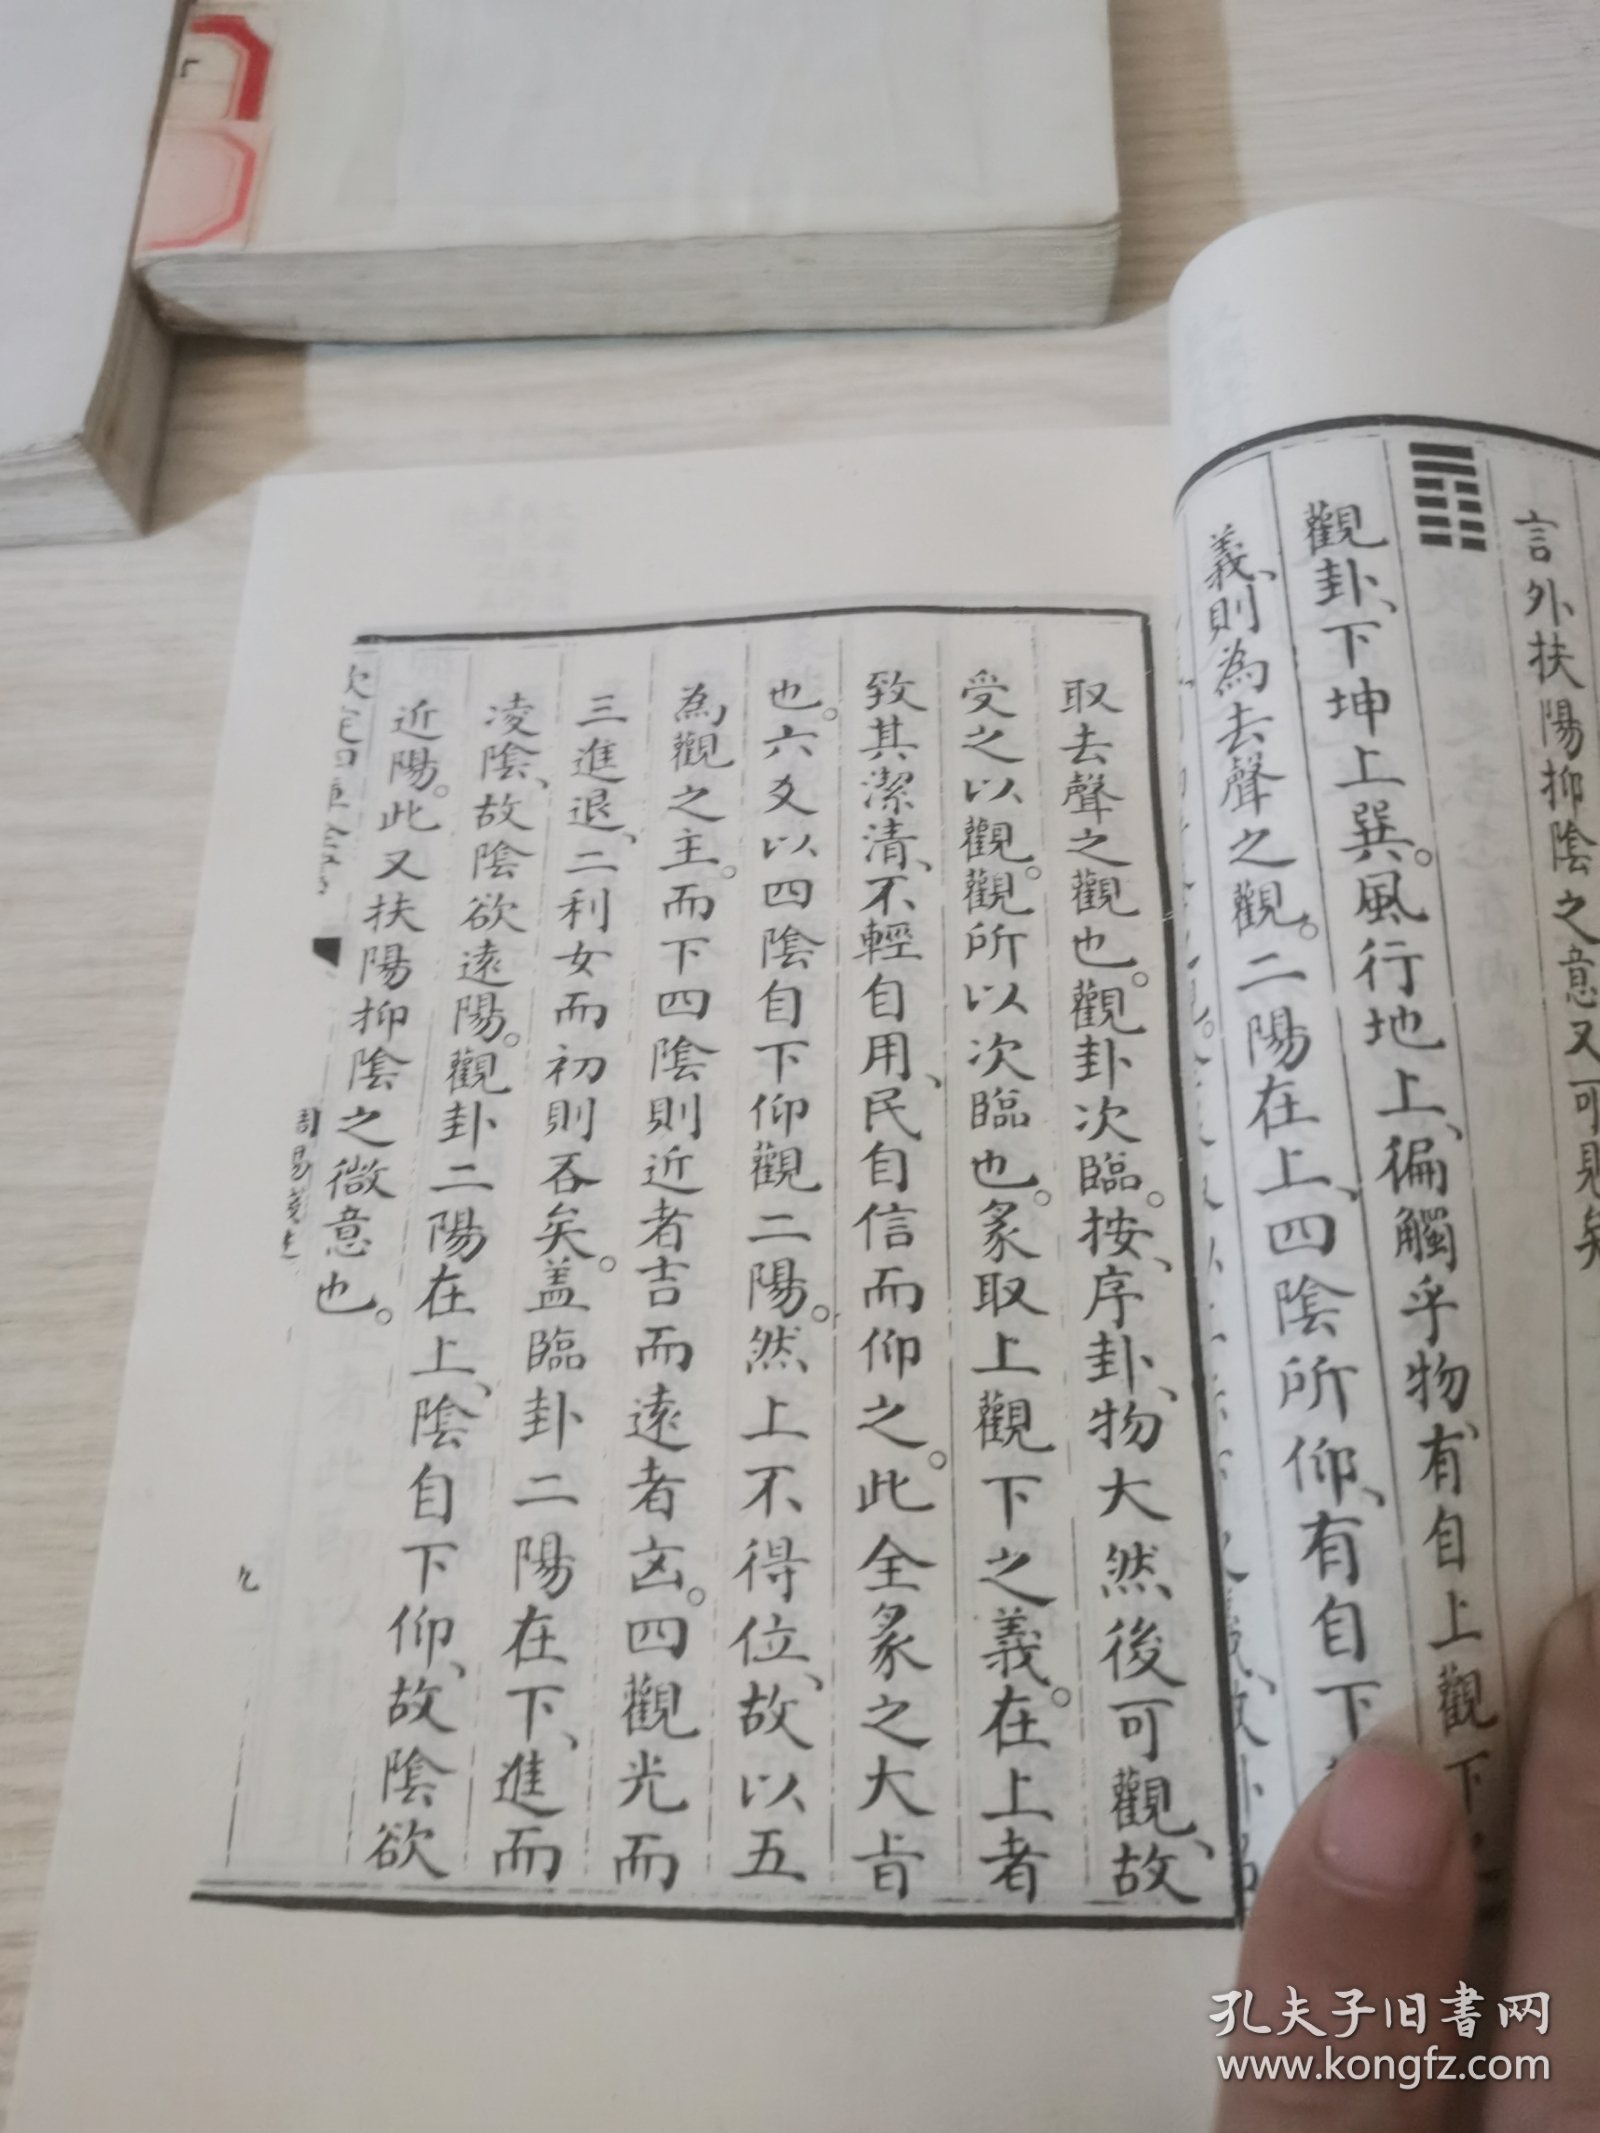 言外扶陽抑陰之意又可見矣
觀卦、下坤上巽。風行地上、徧觸乎物、有自上觀下
義、則為去聲之觀。二陽在上、四陰所仰、有自下
取去聲之觀也。觀卦次臨。按、序卦、物大然後可觀、故
受之以觀。觀所以次臨也。彖取上觀下之義。在上者
致其潔清、不輕自用、民自信而仰之。此全彖之大㫖
也。六爻以四陰自下仰觀二陽。然上不得位、故以五
為觀之主。而下四陰則近者吉而遠者㐫。四觀光而
三進退、二利女而初則吝矣。盖臨卦二陽在下、進而
凌陰、故陰欲遠陽。觀卦二陽在上、陰自下仰、故陰欲
近陽。此又扶陽抑陰之微意也。
欽定四庫全書
周易淺述
九
孔夫子旧书网
www.kongfz.com